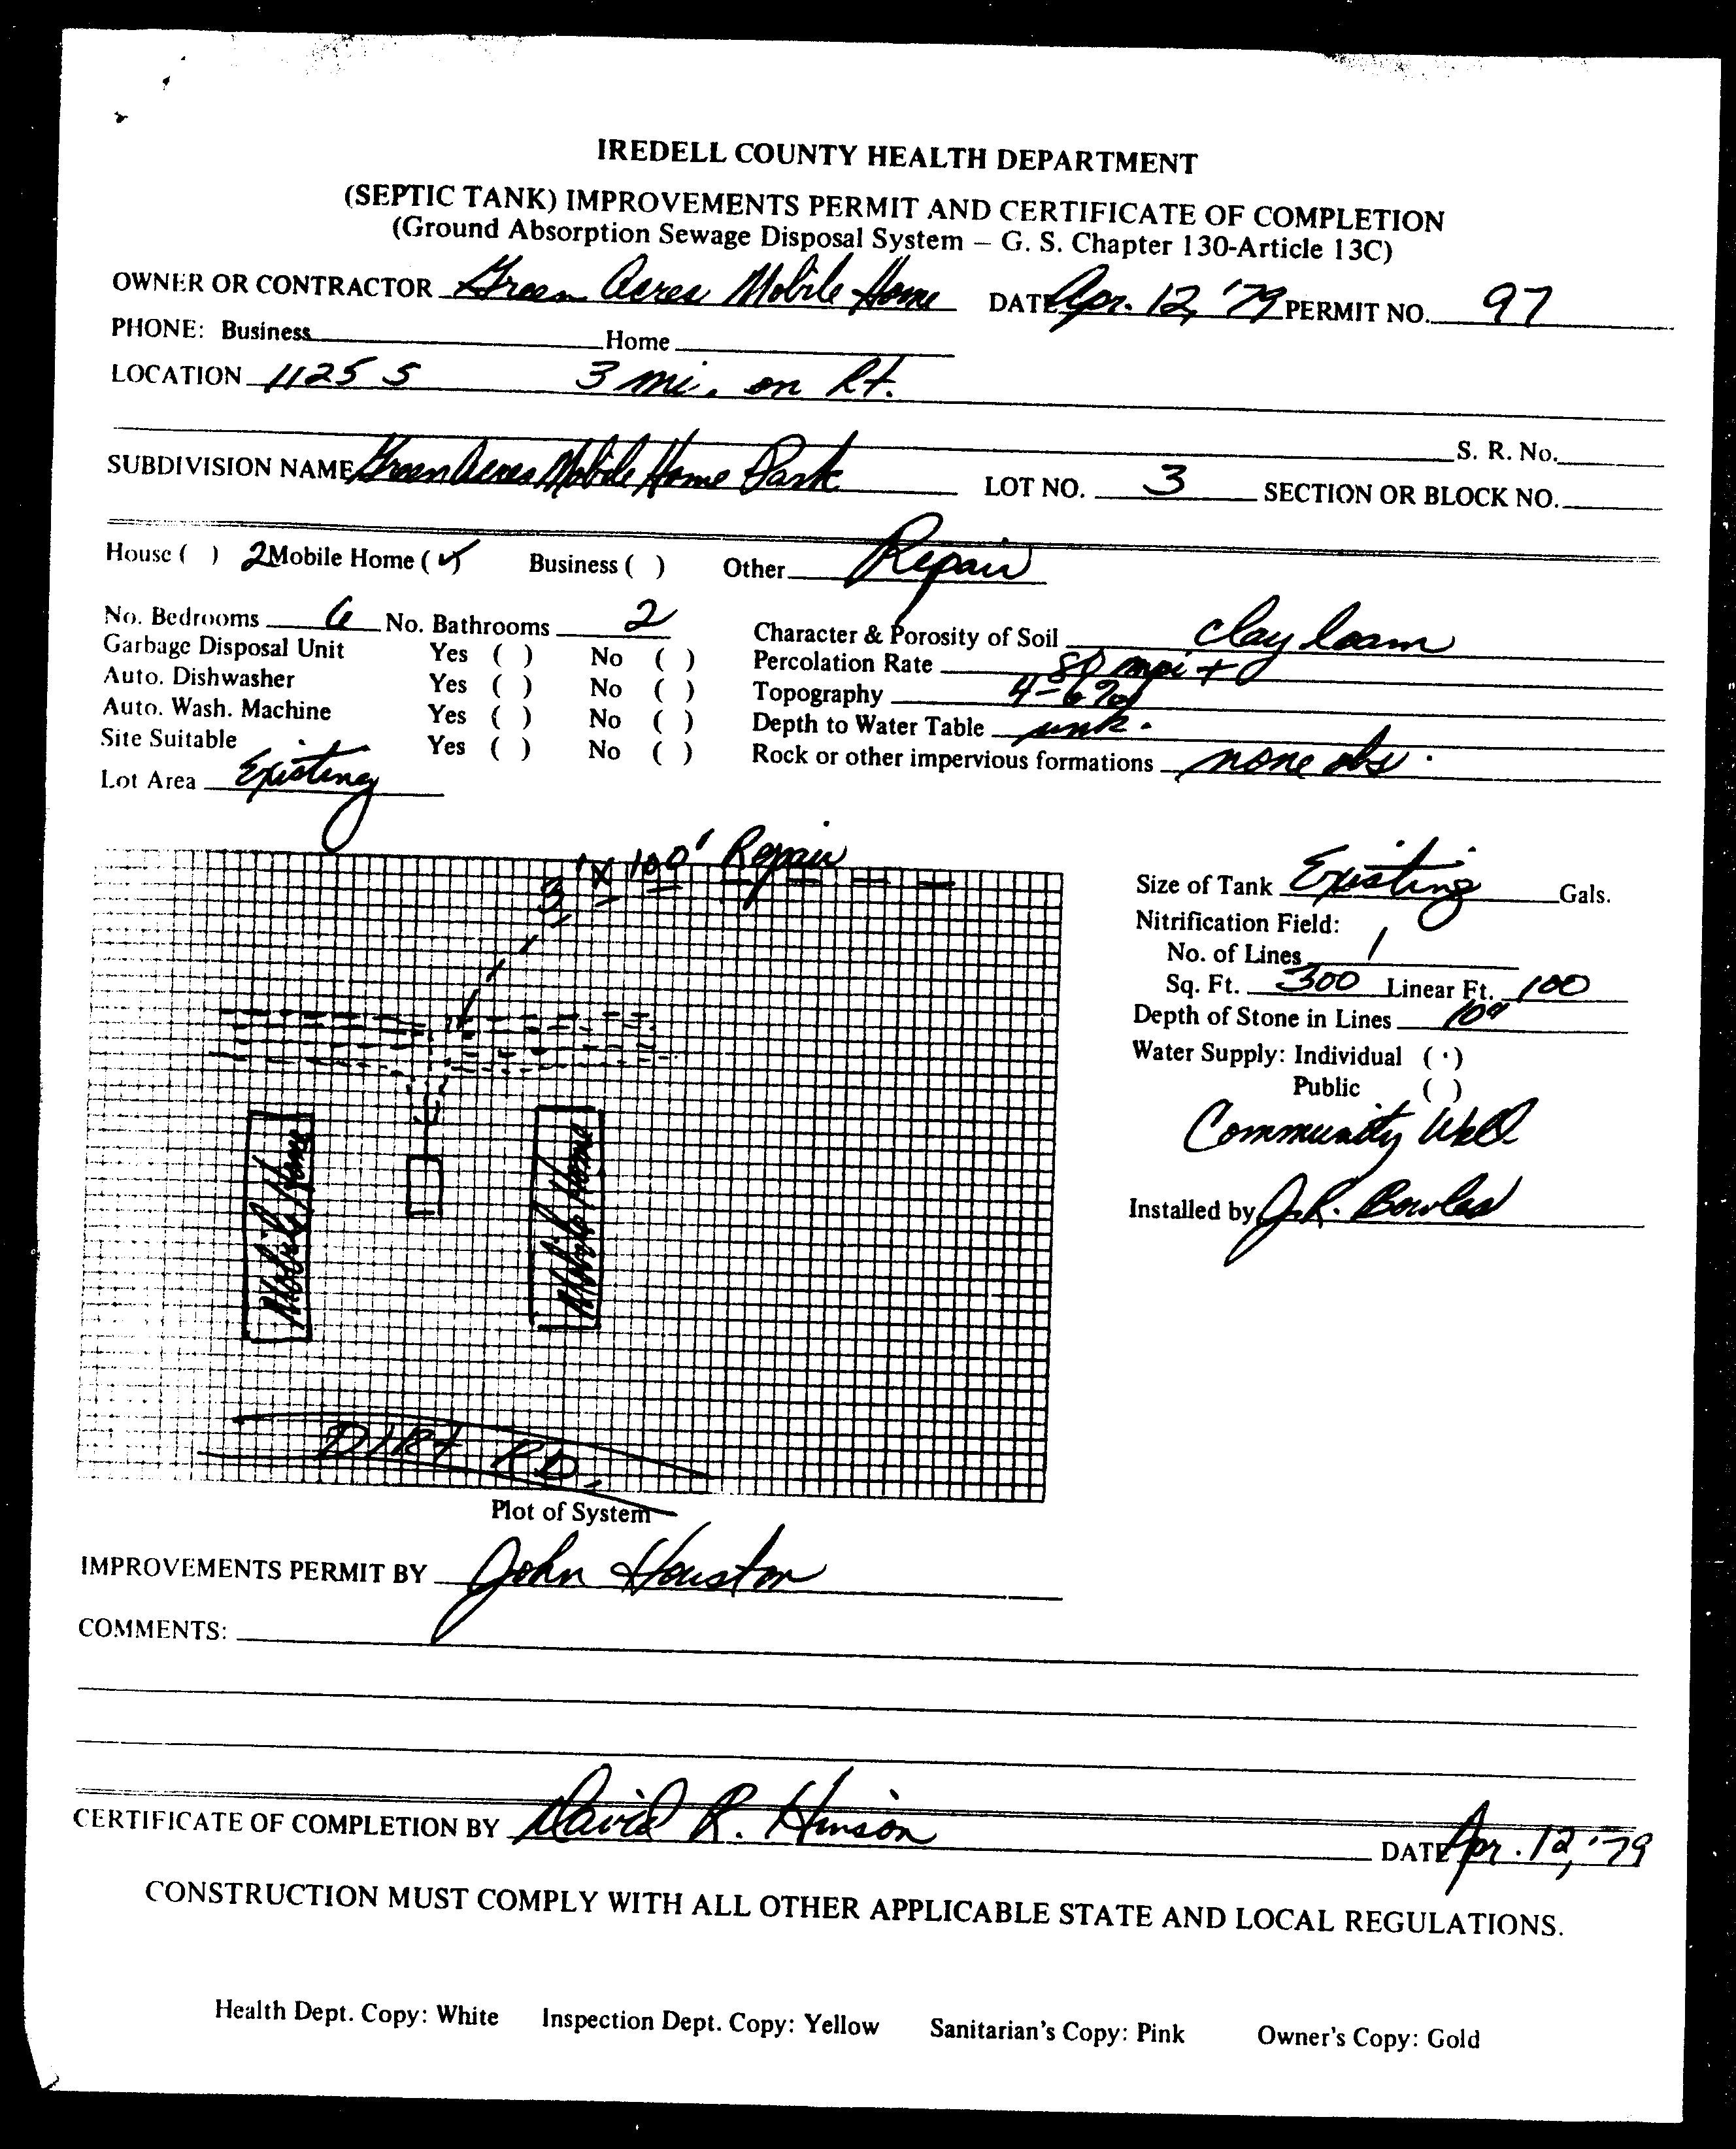 IREDELL COUNTY HEALTH DEPARTMENT
(SEPTIC TANK) IMPROVEMENTS PERMIT AND CERTIFICATE OF COMPLETION
(Ground Absorption Sewage Disposal System – G. S. Chapter 130-Article 13C)
OWNER OR CONTRACTOR Green Acres Mobile Home DATE Apr. 12, '79 PERMIT NO. 97
PHONE: Business Home
LOCATION 1125 S 3 mi. on Rt.
S. R. No.
SUBDIVISION NAME Green Acres Mobile Home Park LOT NO. 3 SECTION OR BLOCK NO.
House ( ) 2 Mobile Home (✓) Business ( ) Other Repair
No. Bedrooms 6 No. Bathrooms 2 Character & Porosity of Soil clay loam
Garbage Disposal Unit Yes ( ) No ( ) Percolation Rate 80 mpi +
Auto. Dishwasher Yes ( ) No ( ) Topography 4-6%
Auto. Wash. Machine Yes ( ) No ( ) Depth to Water Table unk.
Site Suitable Yes ( ) No ( ) Rock or other impervious formations none obs.
Lot Area Existing
3' x 100' Repair
Size of Tank Existing Gals.
Nitrification Field:
No. of Lines 1
Sq. Ft. 300 Linear Ft. 100
Depth of Stone in Lines 10"
Water Supply: Individual (·)
Public ( )
Community Well
Installed by J.R. Bowles
Mobile Home
Mobile Home
DIRT RD.
Plot of System
IMPROVEMENTS PERMIT BY John Houston
COMMENTS:
CERTIFICATE OF COMPLETION BY David R. Hinson DATE Apr. 12, '79
CONSTRUCTION MUST COMPLY WITH ALL OTHER APPLICABLE STATE AND LOCAL REGULATIONS.
Health Dept. Copy: White Inspection Dept. Copy: Yellow Sanitarian's Copy: Pink Owner's Copy: Gold